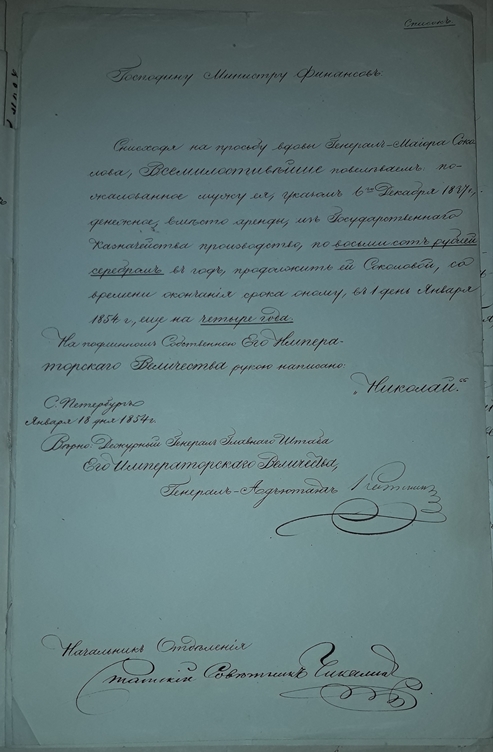 Списокъ.
Господину Министру Финансовъ
Снисходя на просьбу вдовы Генералъ-Маiора Соко-
лова, Всемилостивѣйше повелѣваемъ по-
жалованное мужу ея, указомъ 6го Декабря 1837 г.,
денежное, вмѣсто аренды, изъ Государственнаго
Казначейства производство, по восьми сотъ рублей
серебромъ въ годъ, продолжить ей Соколовой, со
времени окончанія срока оному, въ 1 день Января
1854 г., еще на четыре года.
На подлинномъ Собственною Его Импера-
торскаго Величества рукою написано:
„Николай."
С. Петербургъ
Января 18 дня 1854 г.
Вѣрно: Дежурный Генералъ Главнаго Штаба
Его Императорскаго Величества,
Генералъ-Адъютантъ
Начальникъ Отдѣленія
Статскій Совѣтникъ